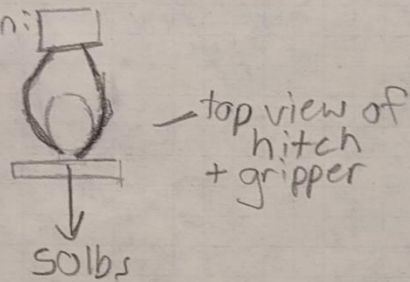 n:
top view of
hitch
+ gripper
50lbs